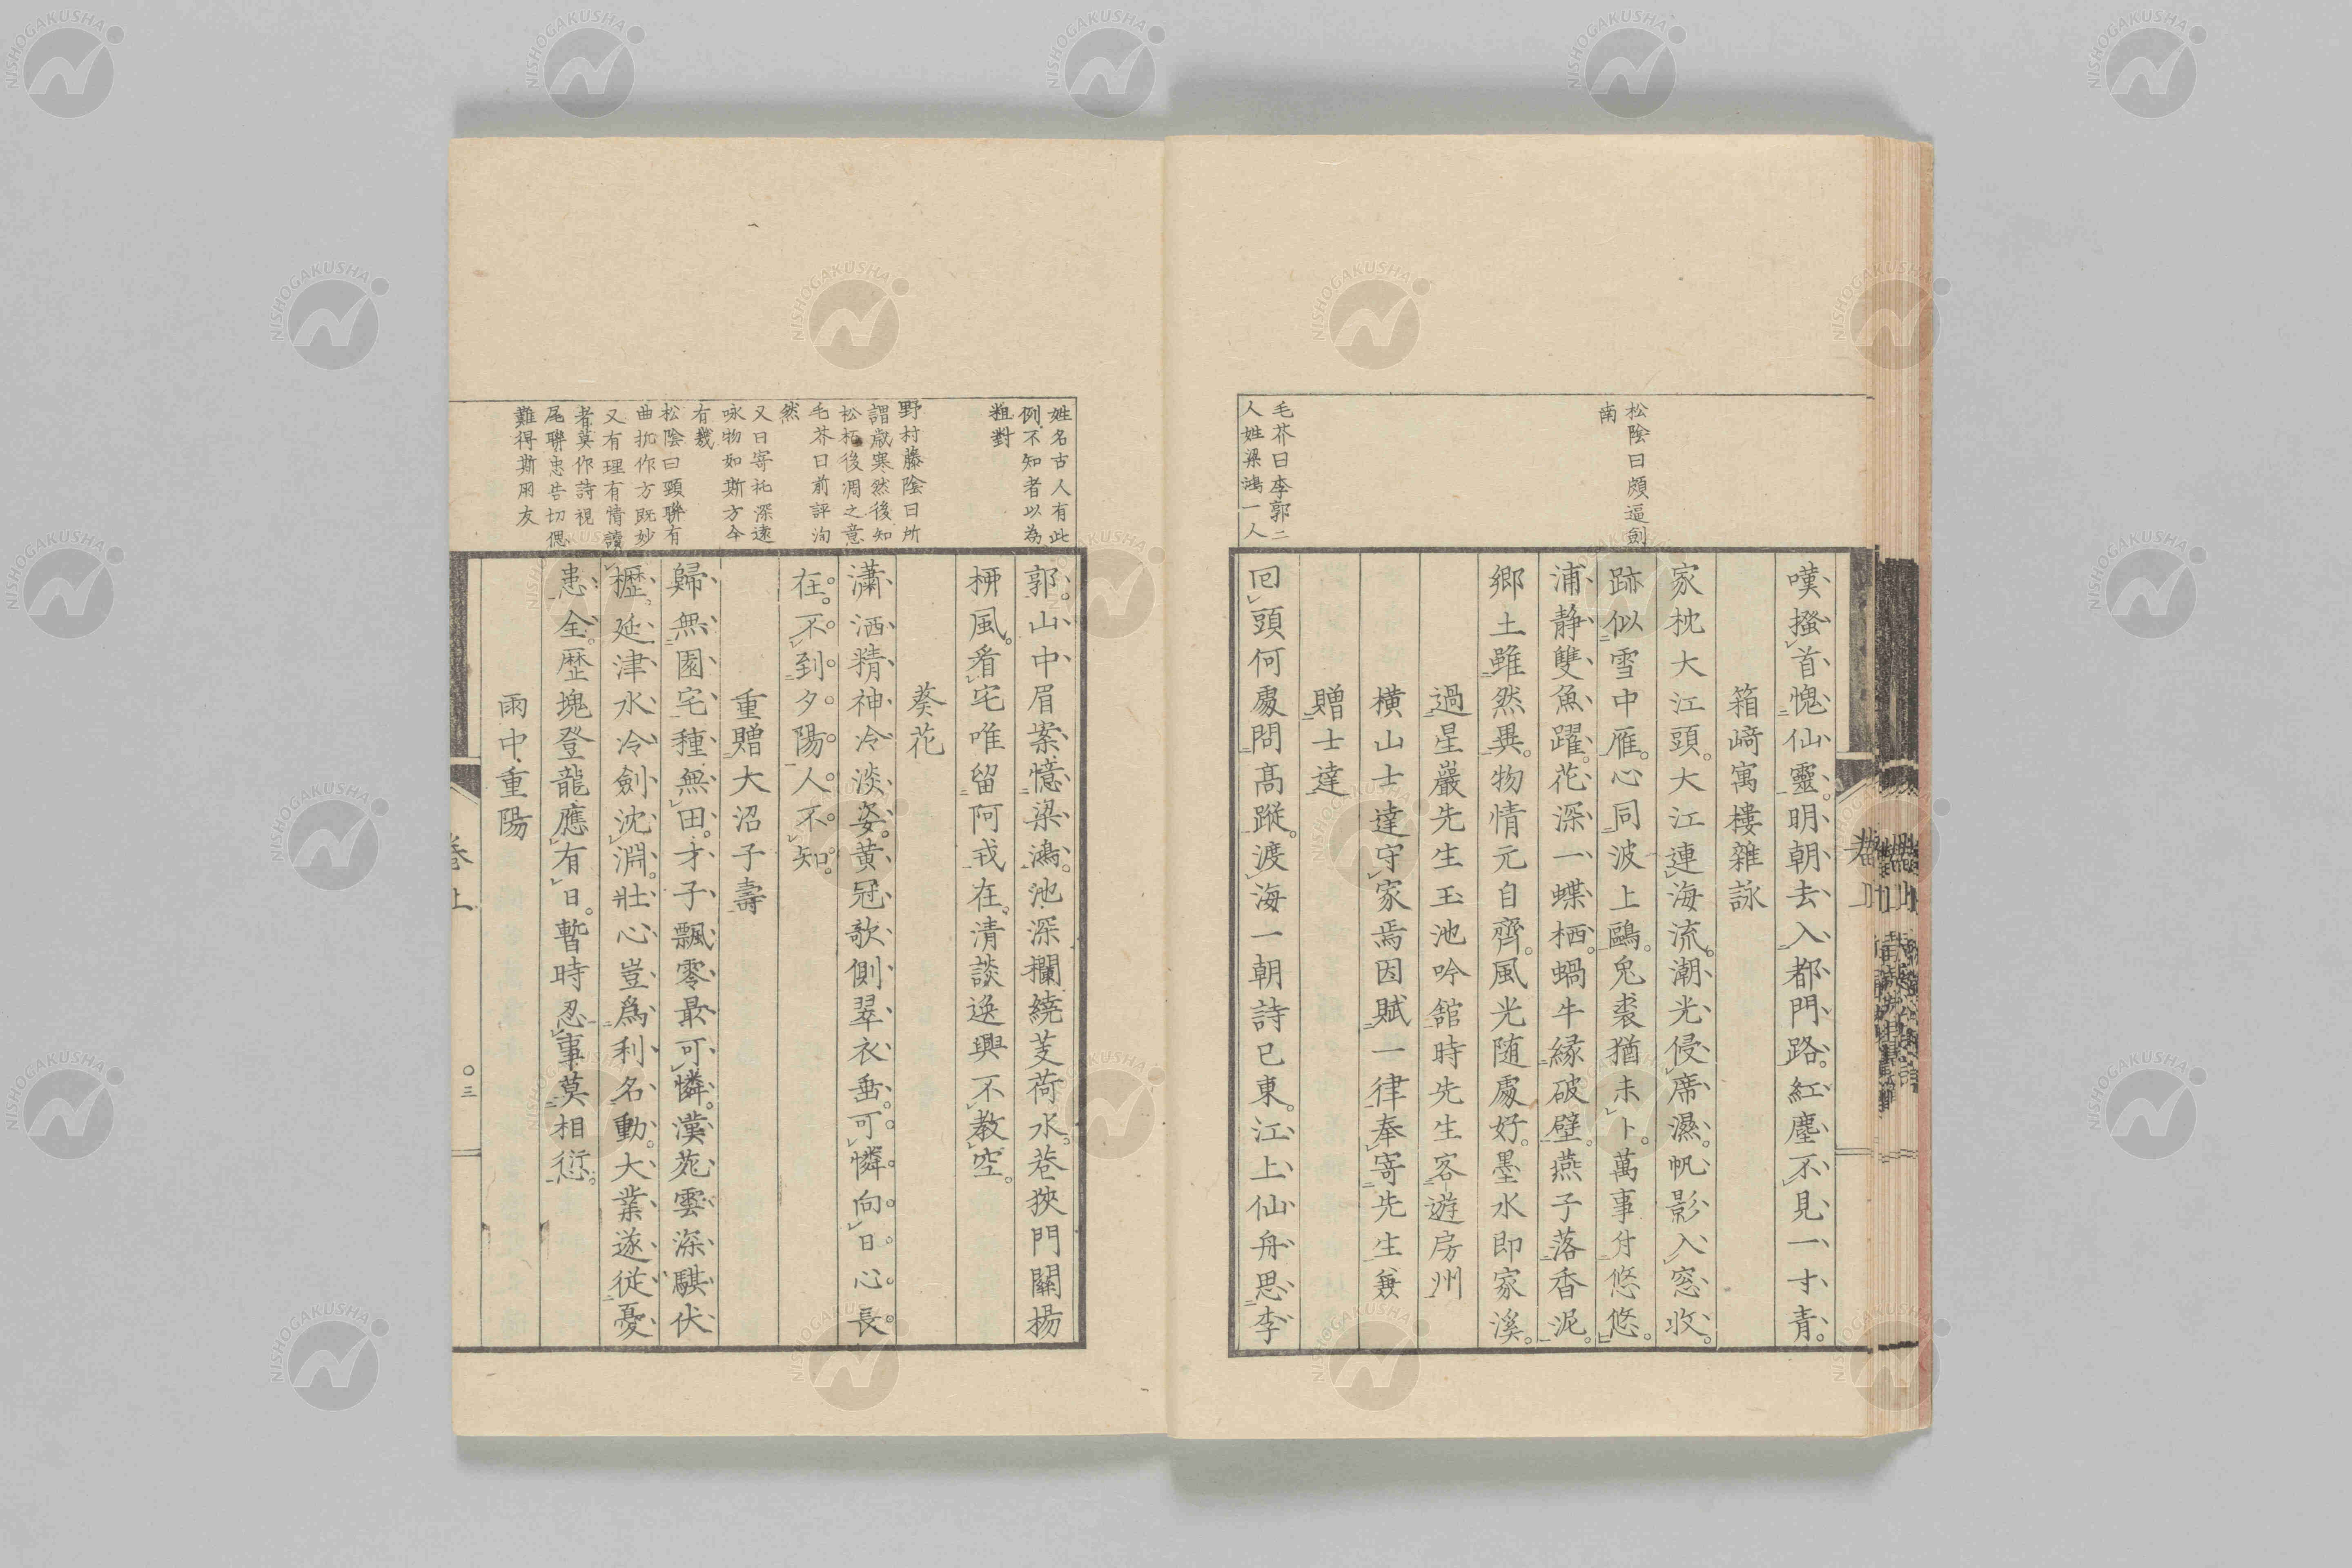 松陰曰頗逼劍
南
毛芥曰李郭二
人姓梁鴻一人
嘆搔首愧仙靈明朝去入都門路紅塵不見一寸青
箱﨑寓樓雜詠
家枕大江頭大江連海流潮光侵席濕帆影入窓收
跡似雪中雁心同波上鷗兎裘猶未卜萬事付悠悠
浦静雙魚躍花深一蝶栖蝸牛縁破壁燕子落香泥
鄉土雖然異物情元自齊風光随處好墨水即家溪
過星巖先生玉池吟舘時先生客遊房州
橫山士達守家焉因賦一律奉寄先生兼
贈士達
回頭何處問高蹤渡海一朝詩已東江上仙舟思李
姓名古人有此
例不知者以為
粗對
野村藤陰曰所
謂歳寒然後知
松柏後凋之意
毛芥曰前評洵
然
又曰寄托深遠
咏物如斯方今
有幾
松陰曰頸聯有
曲折作方既妙
又有理有情讀
者莫作詩視
尾聯忠告切偲
難得斯朋友
郭山中眉案憶梁鴻池深欄繞芰荷水巷狹門關楊
柳風看宅唯留阿戎在清談逸興不教空
葵花
瀟洒精神冷淡姿黄冠欹側翠衣垂可憐向日心長
在不到夕陽人不知
重贈大沼子壽
歸無園宅種無田才子飄零最可憐漢苑雲深騏伏
櫪延津水冷劍沈淵壯心豈爲利名動大業遂従憂
患全歴塊登龍應有日暫時忍事莫相愆
雨中重陽
卷上
〇三
NISHOGAKUSHA